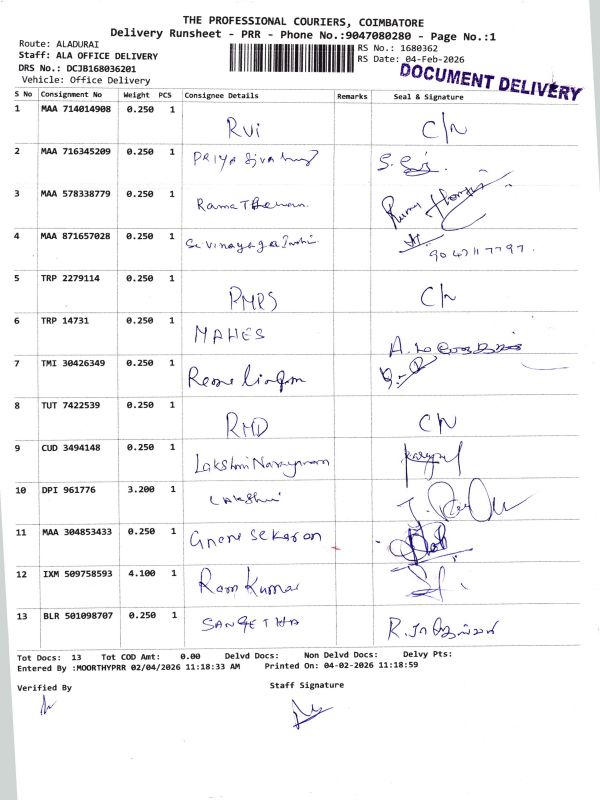 THE PROFESSIONAL COURIERS, COIMBATORE
Delivery Runsheet - PRR - Phone No.:9047080280 - Page No.:1
Route: ALADURAI
RS No.: 1680362
Staff: ALA OFFICE DELIVERY
RS Date: 04-Feb-2026
DRS No.: DCJB168036201
DOCUMENT DELIVERY
Vehicle: Office Delivery
S No Consignment No Weight PCS Consignee Details Remarks Seal & Signature
1 MAA 714014908 0.250 1 RVi C/N
2 MAA 716345209 0.250 1 PRIYA
3 MAA 578338779 0.250 1 Rama
4 MAA 871657028 0.250 1
5 TRP 2279114 0.250 1 C/N
6 TRP 14731 0.250 1 MAHES
7 TMI 30426349 0.250 1
8 TUT 7422539 0.250 1 RMD C/N
9 CUD 3494148 0.250 1 Lakshmi Narayanan
10 DPI 961776 3.200 1 Lakshmi
11 MAA 304853433 0.250 1 Gnene sekaran
12 IXM 509758593 4.100 1 Ram Kumar
13 BLR 501098707 0.250 1 SANGETHA
Tot Docs: 13 Tot COD Amt: 0.00 Delvd Docs: Non Delvd Docs: Delvy Pts:
Entered By :MOORTHYPRR 02/04/2026 11:18:33 AM Printed On: 04-02-2026 11:18:59
Verified By Staff Signature